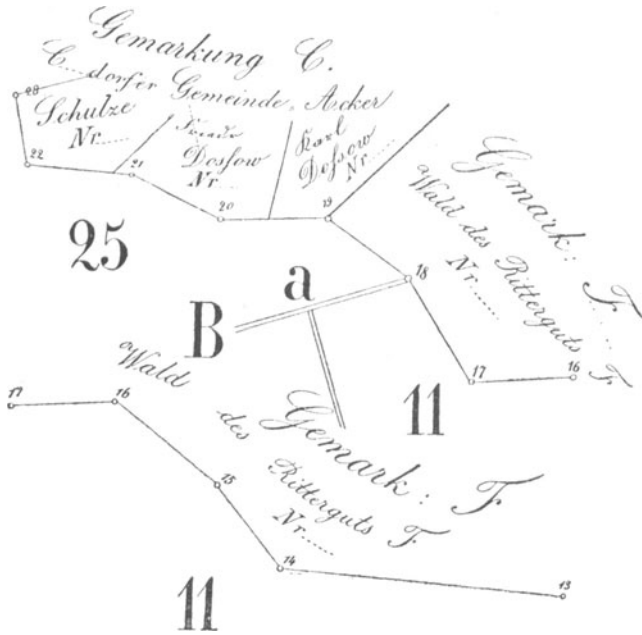 Gemarkung C.
C......dorfer Gemeinde, Acker
Schulze
Nr......
Dossow
Nr....
Karl
Dossow
Nr......
23
22
21
20
19
18
17
16
25
a
B
11
Gemark: F......
Wald des Ritterguts F
Nr......
Wald
des
Ritterguts F
Nr......
Gemark: F
17
16
15
14
13
11